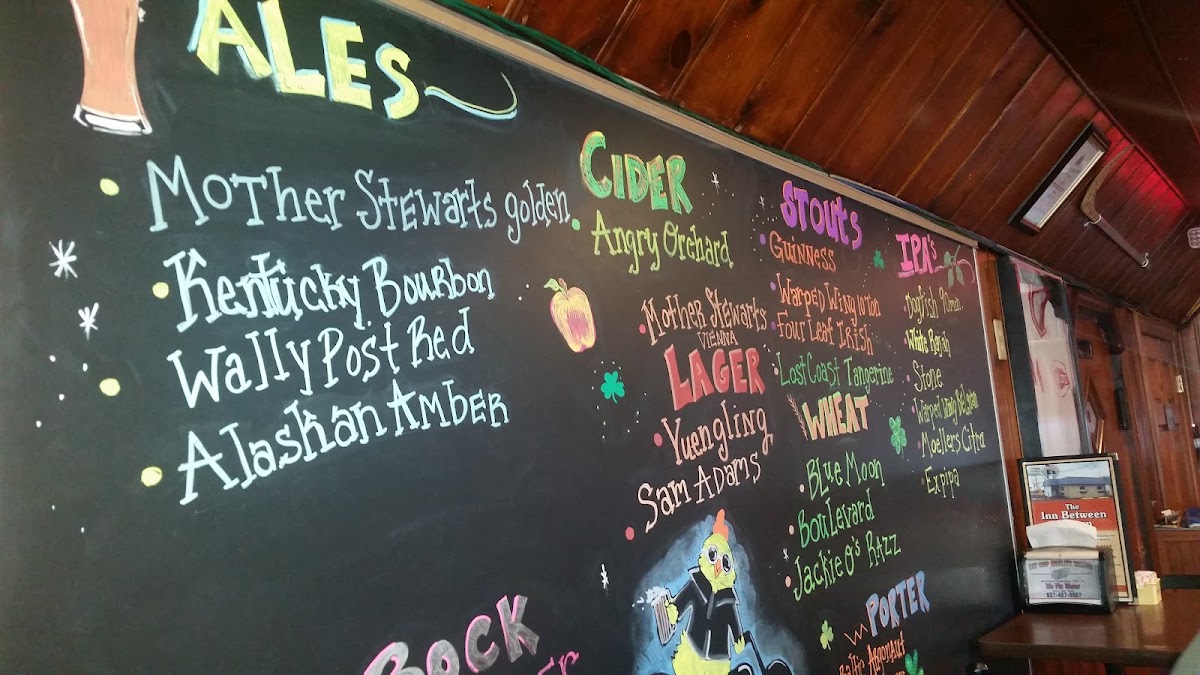 ALES
Mother Stewarts golden
Kentucky Bourbon
Wally Post Red
Alaskan Amber
CIDER
Angry Orchard
Mother Stewarts
VIENNA
LAGER
Yuengling
Sam Adams
BOCK
STOUTS
Guinness
Warped Wing 10 Ton
Four Leaf Irish
Lost Coast Tangerine
WHEAT
Blue Moon
Boulevard
Jackie O's Razz
PORTER
Baltic Argonaut
IPA's
Dogfish 90min
White Rajah
Stone
Warped Wing
Moellers Citra
Expipa
The
Inn Between
We Fix Water